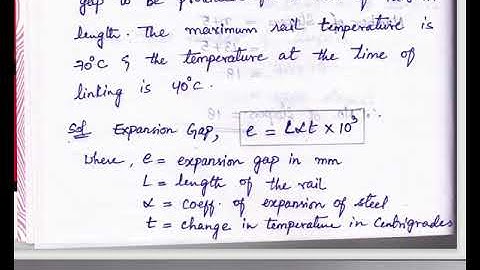 gap to be provided
length. The maximum rail temperature is
70°C & the temperature at the time of
linking is 40°C.
Sol Expansion Gap, e = Lαt × 10³
Where, e = expansion gap in mm
L = length of the rail
α = coeff. of expansion of steel
t = change in temperature in Centrigrades